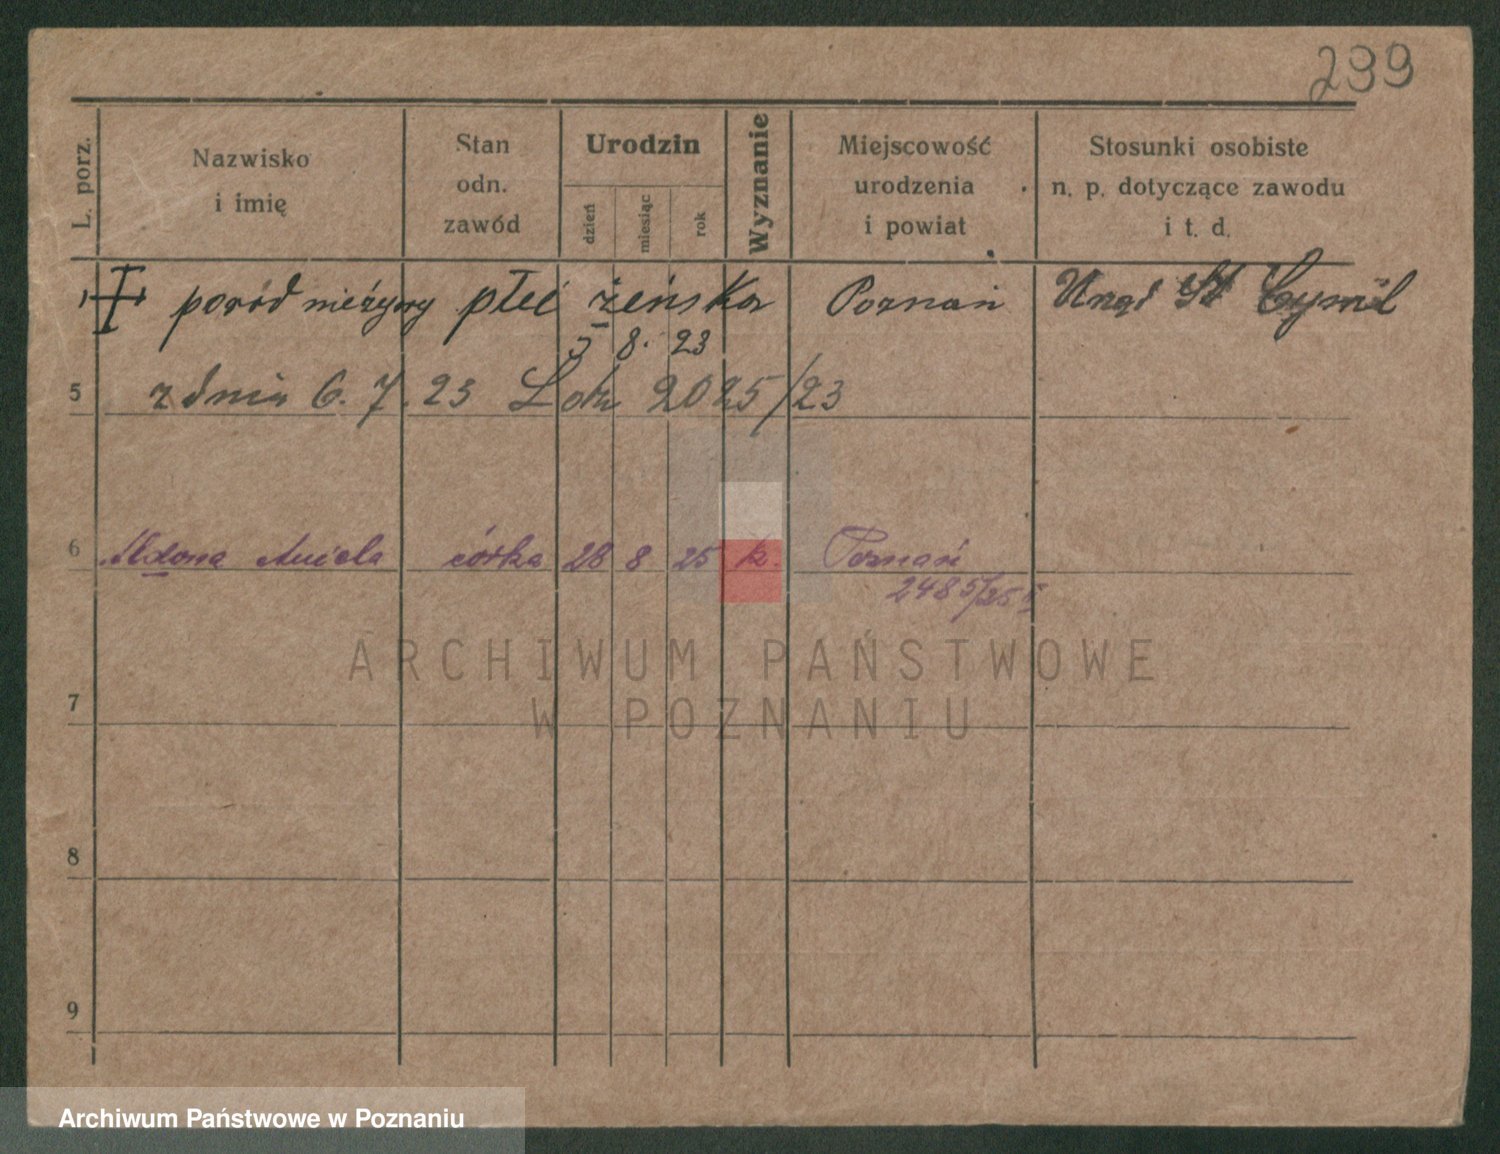 299
L. porz.
Nazwisko
i imię
Stan
odn.
zawód
Urodzin
dzień
miesiąc
rok
Wyznanie
Miejscowość
urodzenia
i powiat
Stosunki osobiste
n. p. dotyczące zawodu
i t. d.
poród nieżywy płeć żeńska Poznań Urząd St Cywil
5 8. 23
5 z dnia 6. 7. 23 2025/23
6 Aniela córka 28 8 25 k. Poznań
2485/25
ARCHIWUM PAŃSTWOWE
W POZNANIU
7
8
9
Archiwum Państwowe w Poznaniu